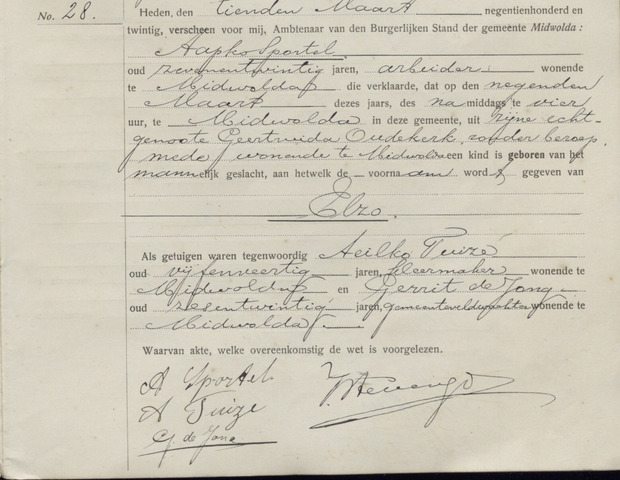 No. 28. Heden, den tienden Maart negentienhonderd en
twintig, verscheen voor mij, Ambtenaar van den Burgerlijken Stand der gemeente Midwolda:
Aapko Sportel
oud zevenentwintig jaren, arbeider wonende
te Midwolda, die verklaarde, dat op den negenden
Maart dezes jaars, des na middags te vier
uur, te Midwolda in deze gemeente, uit zijne echt-
genoote Geertruida Oudekerk, zonder beroep,
mede wonende te Midwolda een kind is geboren van het
mannelijk geslacht, aan hetwelk de voornaam wordt gegeven van
Elzo.
Als getuigen waren tegenwoordig Aeilko Tuizé
oud vijfenveertig jaren, kleermaker wonende te
Midwolda en Gerrit de Jong
oud zesentwintig jaren, gemeenteveldwachter wonende te
Midwolda.
Waarvan akte, welke overeenkomstig de wet is voorgelezen.
A Sportel
A Tuize
G. de Jong